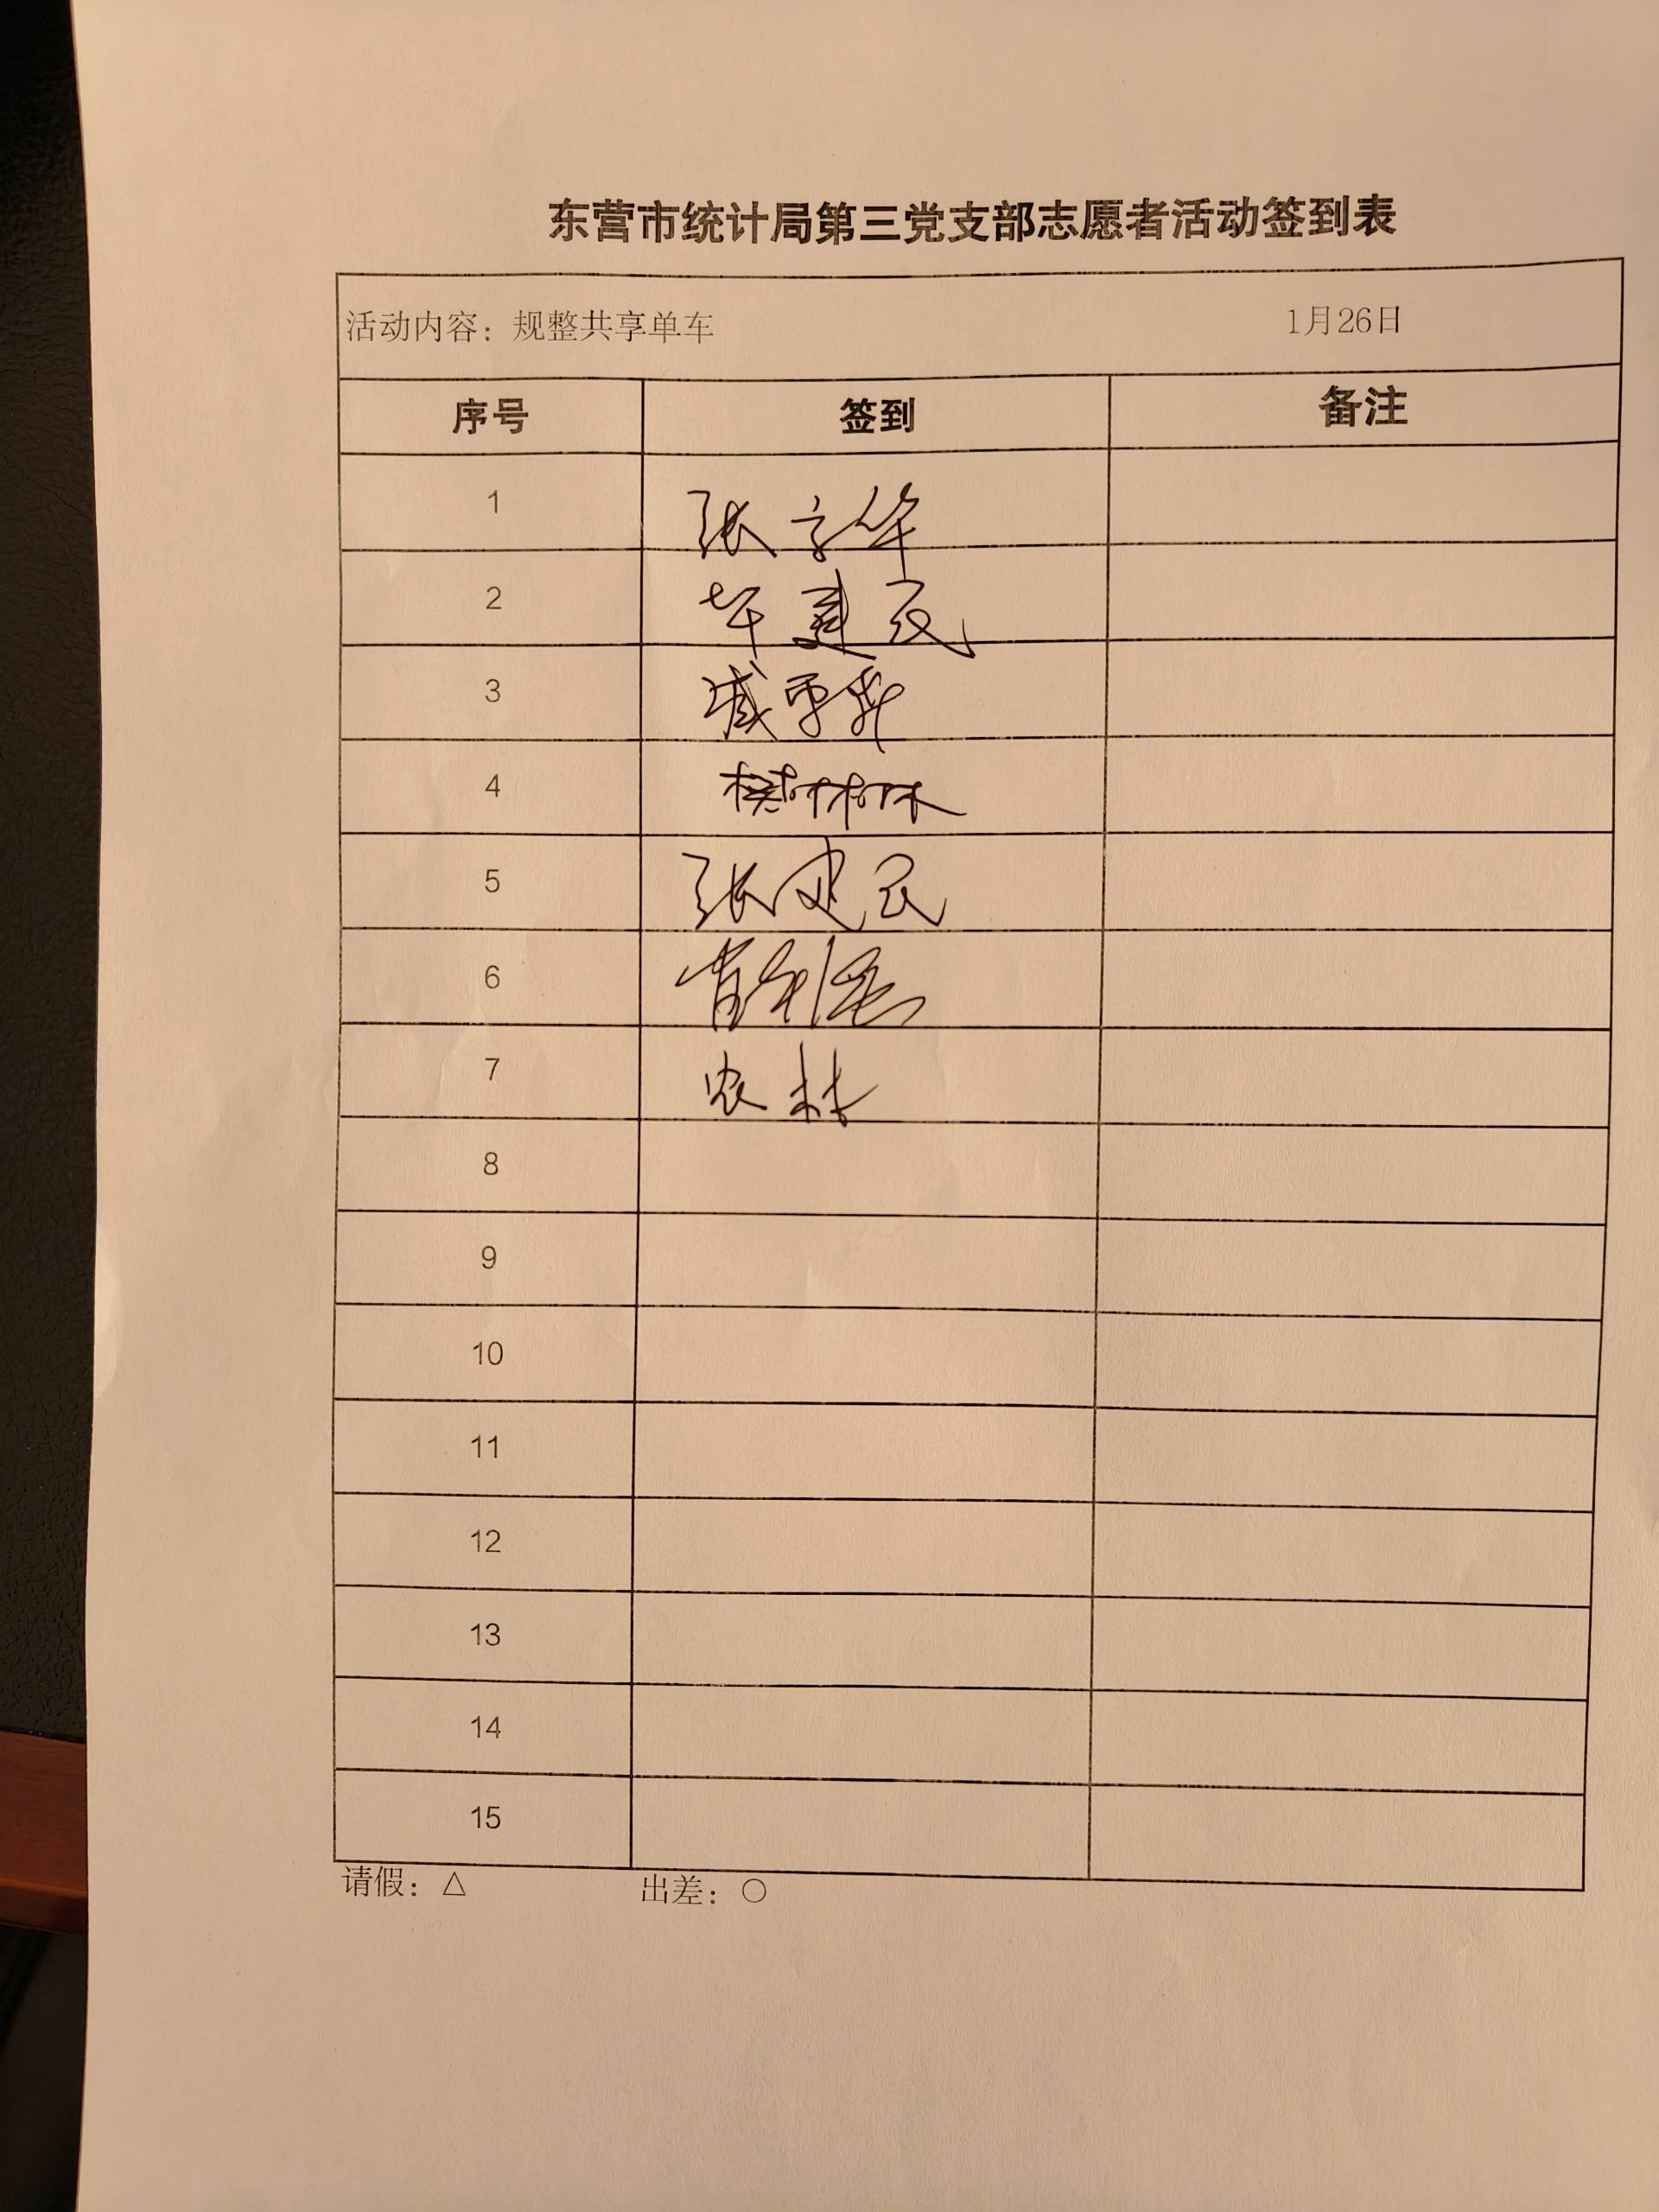 东营市统计局第三党支部志愿者活动签到表
活动内容：规整共享单车 1月26日
序号 签到 备注
1 张
2 建民
3
4 樊林林
5 张建民
6
7 农林
8
9
10
11
12
13
14
15
请假：△ 出差：○